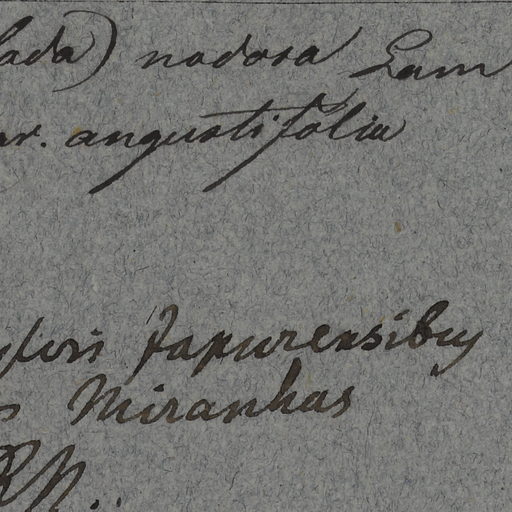 lada) nodosa Lam
ar. angustifolia
ylvis Japurensibus
s Miranhas